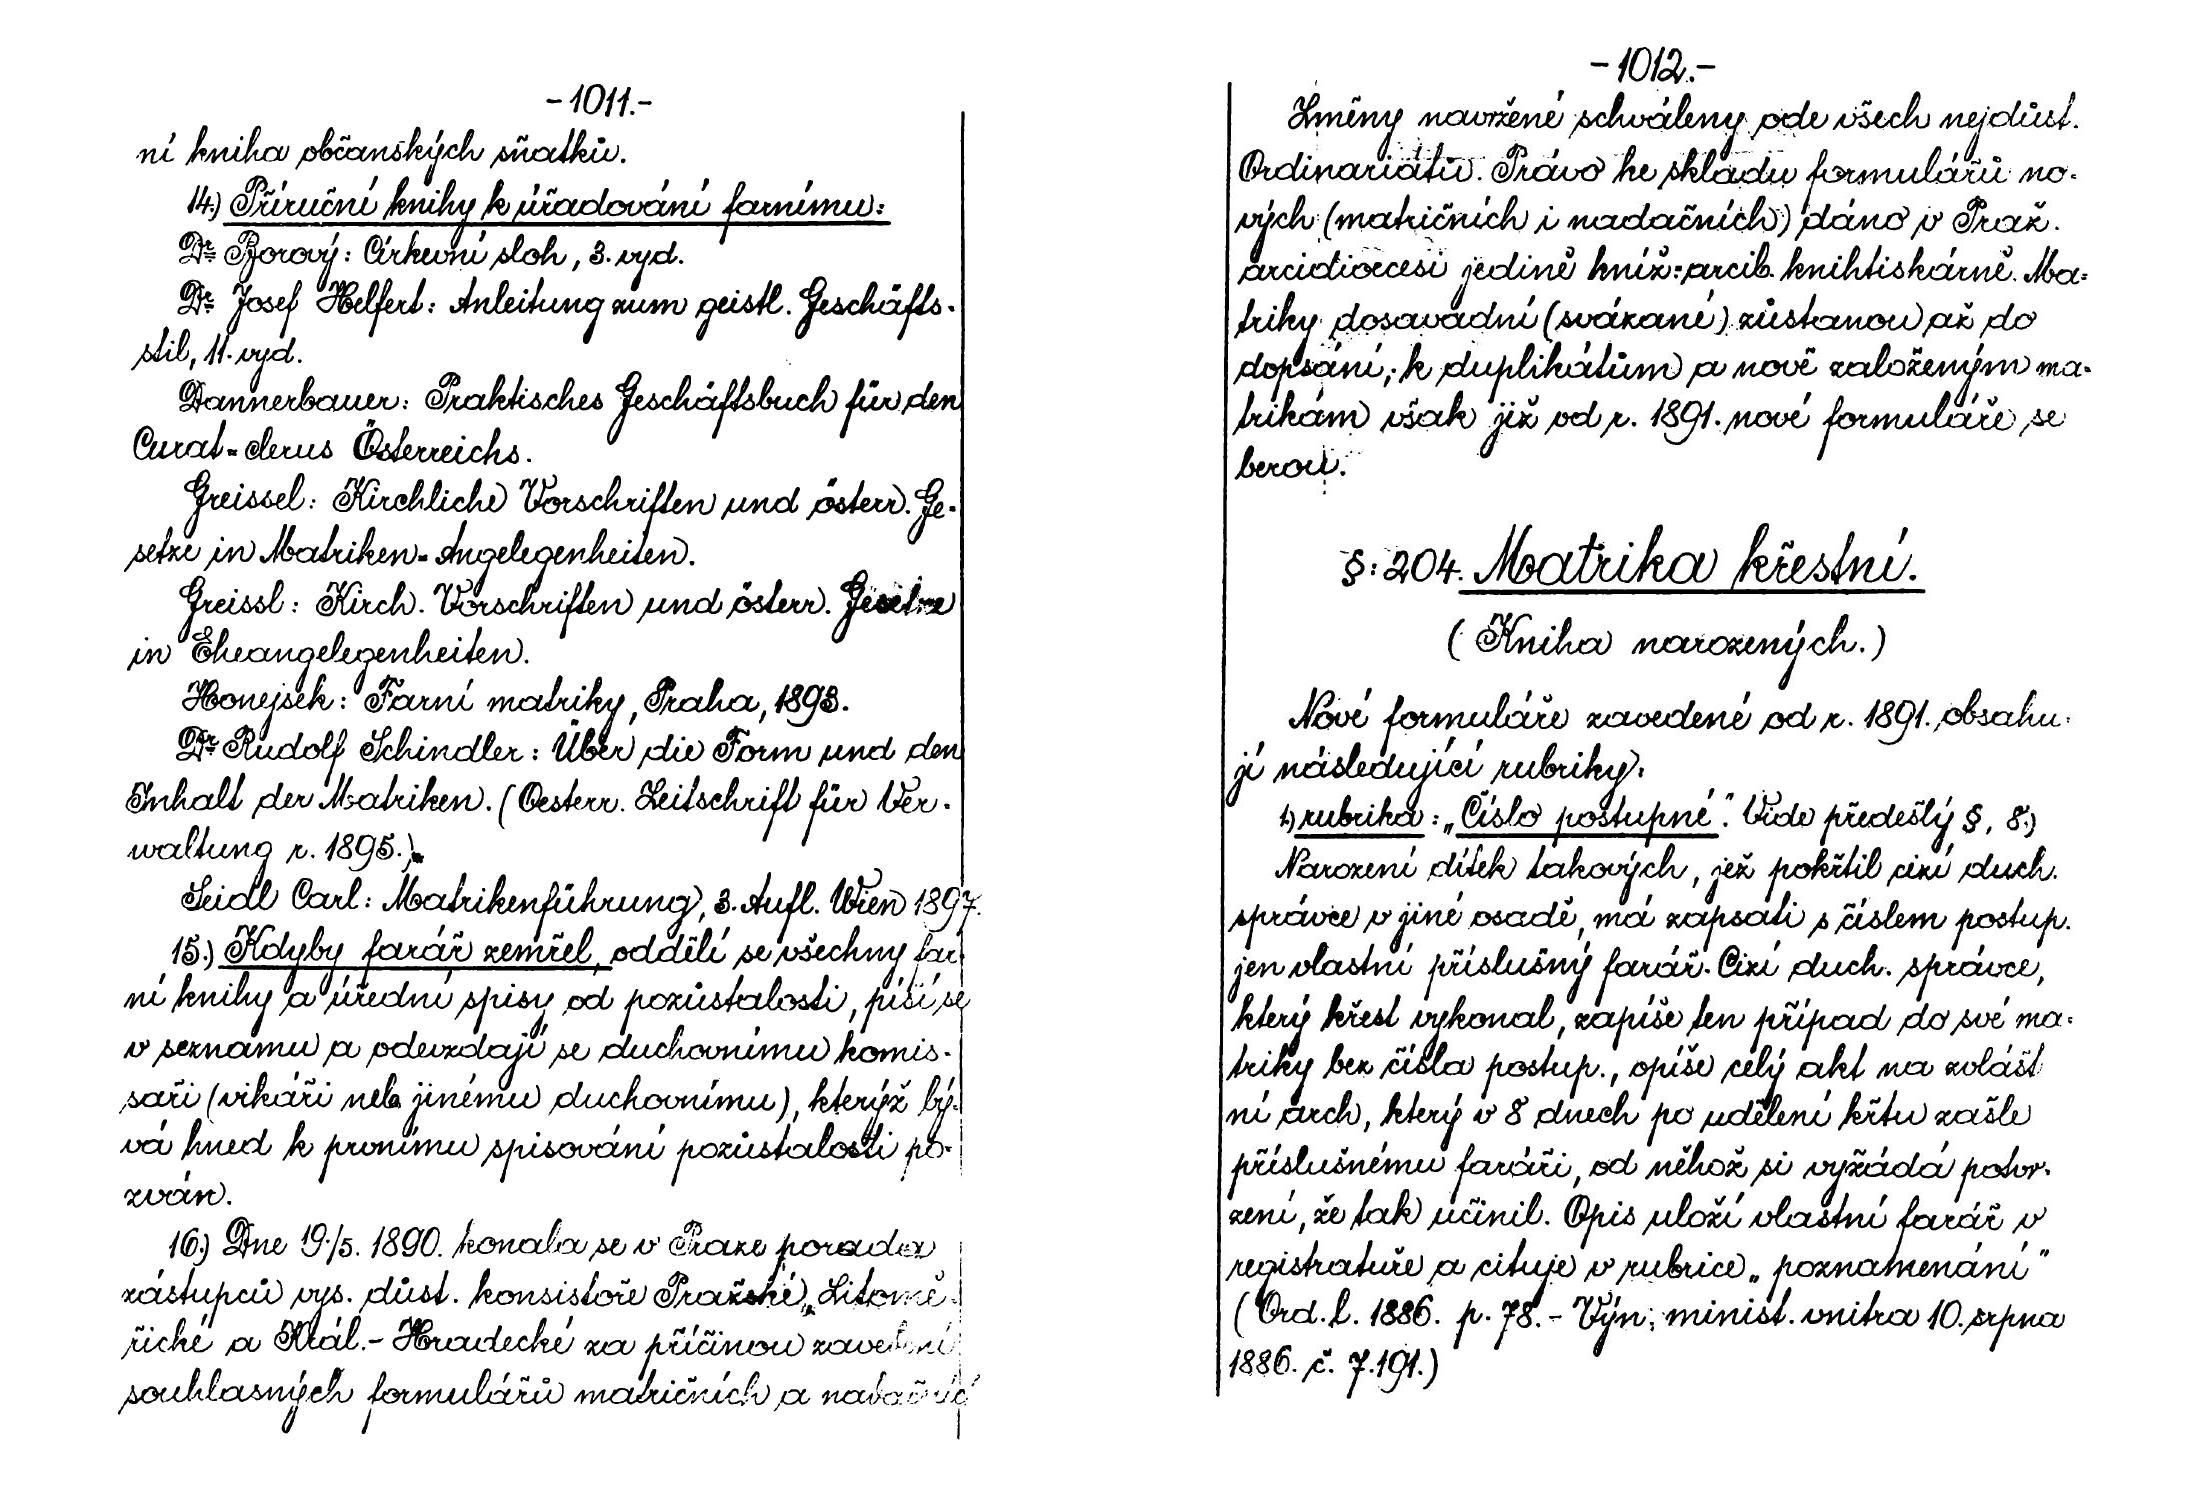 -1011.-
ní kniha občanských sňatků.
14.) Příruční knihy k úřadování farnímu:
Dr Borový: Církevní sloh, 3. vyd.
Dr Josef Helfert: Anleitung zum geistl. Geschäfts-
stil, 11. vyd.
Dannerbauer: Praktisches Geschäftsbuch für den
Curat-clerus Österreichs.
Greissel: Kirchliche Vorschriften und österr. Ge-
setze in Matriken-Angelegenheiten.
Greissl: Kirch. Vorschriften und österr. Gesetze
in Eheangelegenheiten.
Honejsek: Farní matriky, Praha, 1893.
Dr Rudolf Schindler: Über die Form und den
Inhalt der Matriken. (Oesterr. Zeitschrift für Ver-
waltung r. 1895.)
Seidl Carl: Matrikenführung, 3. Aufl. Wien 1897.
15.) Kdyby farář zemřel, oddělí se všechny far-
ní knihy a úřední spisy od pozůstalosti, píší se
v seznamu a odevzdají se duchovnímu komis-
saři (vikáři neb jinému duchovnímu), kterýž bý-
vá hned k prvnímu spisování pozůstalosti po-
zván.
16.) Dne 19./5. 1890. konala se v Praze porada
zástupců vys. důst. konsistoře Pražské, Litomě-
řické a Král.- Hradecké za příčinou zavedení
souhlasných formulářů matričních a nadačních
-1012.-
Změny navržené schváleny ode všech nejdůst.
Ordinariátů. Právo ke skladu formulářů no-
vých (matričních i nadačních) dáno v Praž.
arcidioecesi jedině kníž: arcib. knihtiskárně. Ma-
triky dosavadní (svázané) zůstanou až do
dopsání; k duplikátům a nově založeným ma-
trikám však již od r. 1891. nové formuláře se
berou.
§: 204. Matrika křestní.
(Kniha narozených.)
Nové formuláře zavedené od r. 1891. obsahu-
jí následující rubriky:
1.) rubrika: „Číslo postupné". Vide předešlý §, 8.)
Narození dítek takových, jež pokřtil cizí duch.
správce v jiné osadě, má zapsati s číslem postup.
jen vlastní příslušný farář. Cizí duch. správce,
který křest vykonal, zapíše ten případ do své ma-
triky bez čísla postup., opíše celý akt na zvlášt
ní arch, který v 8 dnech po udělení křtu zašle
příslušnému faráři, od něhož si vyžádá potvr-
zení, že tak učinil. Opis uloží vlastní farář v
registratuře a cituje v rubrice „poznamenání"
(Ord. L. 1886. p. 78. - Výn: minist. vnitra 10. srpna
1886. č. 7.191.)